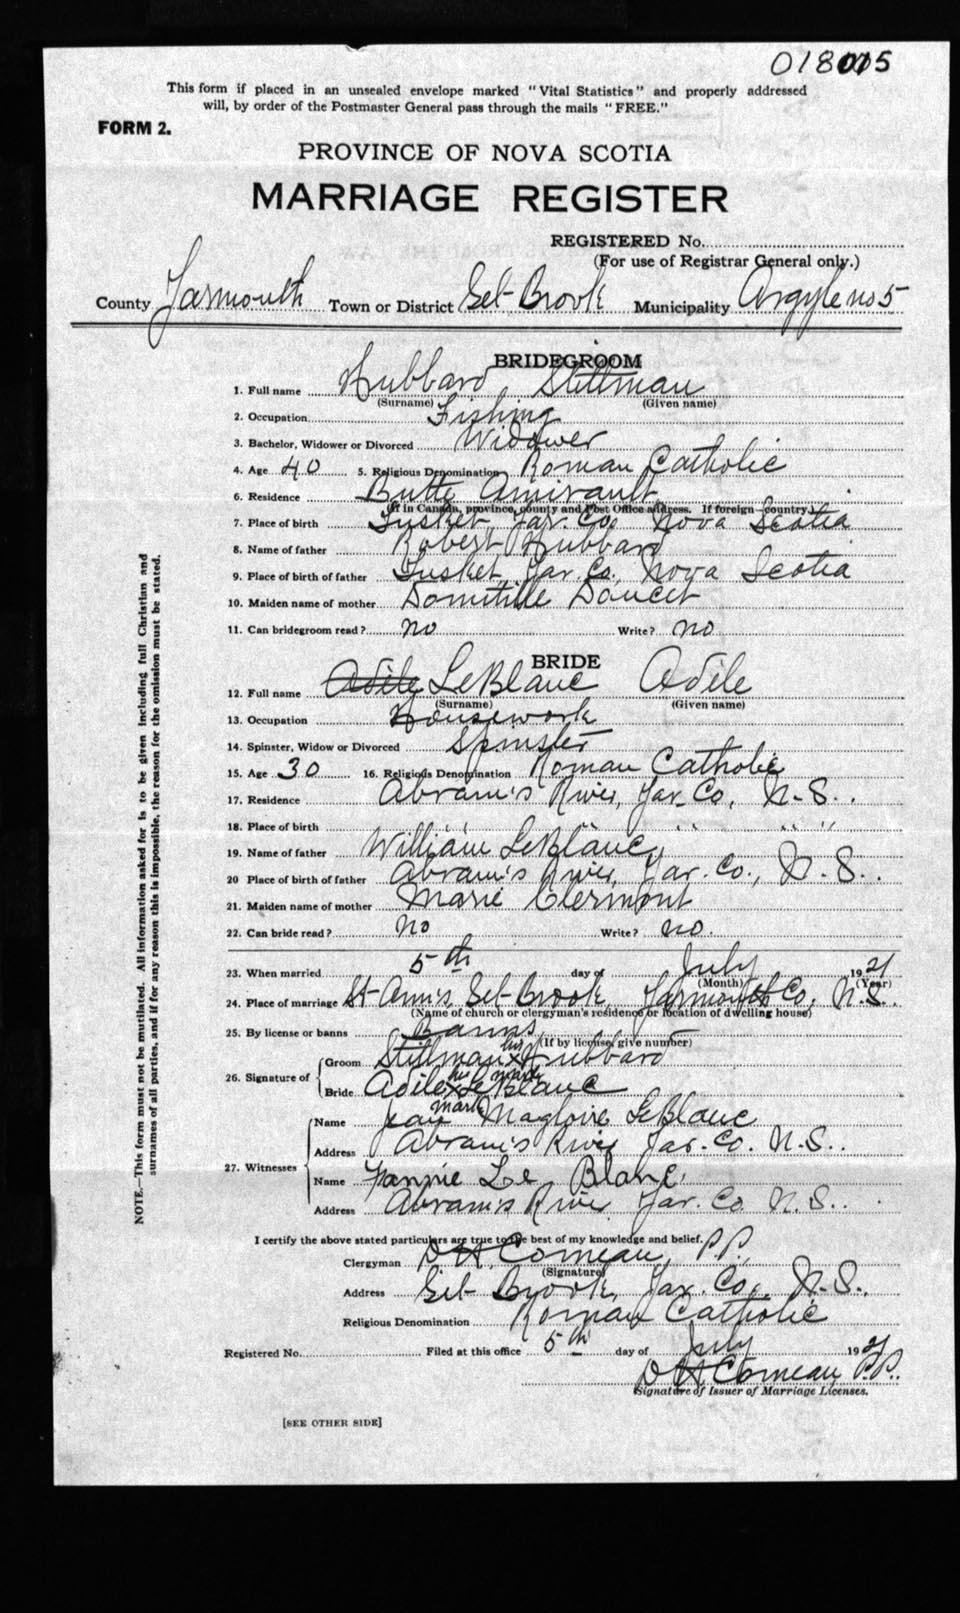 018015
This form if placed in an unsealed envelope marked "Vital Statistics" and properly addressed
will, by order of the Postmaster General pass through the mails "FREE."
FORM 2.
PROVINCE OF NOVA SCOTIA
MARRIAGE REGISTER
REGISTERED No.
(For use of Registrar General only.)
County Yarmouth Town or District Eel-Brook Municipality Argyle no 5
BRIDEGROOM
1. Full name Hubbard, Stillman
(Surname) (Given name)
2. Occupation Fishing
3. Bachelor, Widower or Divorced Widower
4. Age 40 5. Religious Denomination Roman Catholic
6. Residence Butte Amirault
(If in Canada, province, county and Post Office address. If foreign—country.)
7. Place of birth Tusket, Yar. Co. Nova Scotia
8. Name of father Robert Hubbard
9. Place of birth of father Tusket, Yar. Co. Nova Scotia
10. Maiden name of mother Domitille Doucet
11. Can bridegroom read? no Write? no
BRIDE
12. Full name Adile LeBlanc Adile
(Surname) (Given name)
13. Occupation Housework
14. Spinster, Widow or Divorced Spinster
15. Age 30 16. Religious Denomination Roman Catholic
17. Residence Abram's River, Yar. Co, N.S..
18. Place of birth " " " "
19. Name of father William LeBlanc
20 Place of birth of father Abram's River, Yar. Co., N.S..
21. Maiden name of mother Marie Clermont
22. Can bride read? no Write? no.
23. When married 5th day of July 1921
(Month) (Year)
24. Place of marriage St-Ann's Eel-Brook, Yarmouth Co, N.S..
(Name of church or clergyman's residence or location of dwelling house)
25. By license or banns Banns
(If by license, give number)
26. Signature of Groom Stillman his x mark Hubbard
Bride Adile her x mark LeBlanc
27. Witnesses Name Jean Magloire LeBlanc
Address Abram's River Yar. Co. N.S..
Name Fannie Le Blanc
Address Abram's River Yar. Co. N.S..
I certify the above stated particulars are true to the best of my knowledge and belief.
Clergyman D H Comeau, P.P.,
(Signature)
Address Eel-Brook, Yar. Co., N.S.,
Religious Denomination Roman Catholic
Registered No. Filed at this office 5th day of July 1921
D H Comeau P.P..
Signature of Issuer of Marriage Licenses.
[SEE OTHER SIDE]
NOTE.—This form must not be mutilated. All information asked for is to be given including full Christian and
surnames of all parties, and if for any reason this is impossible, the reason for the omission must be stated.